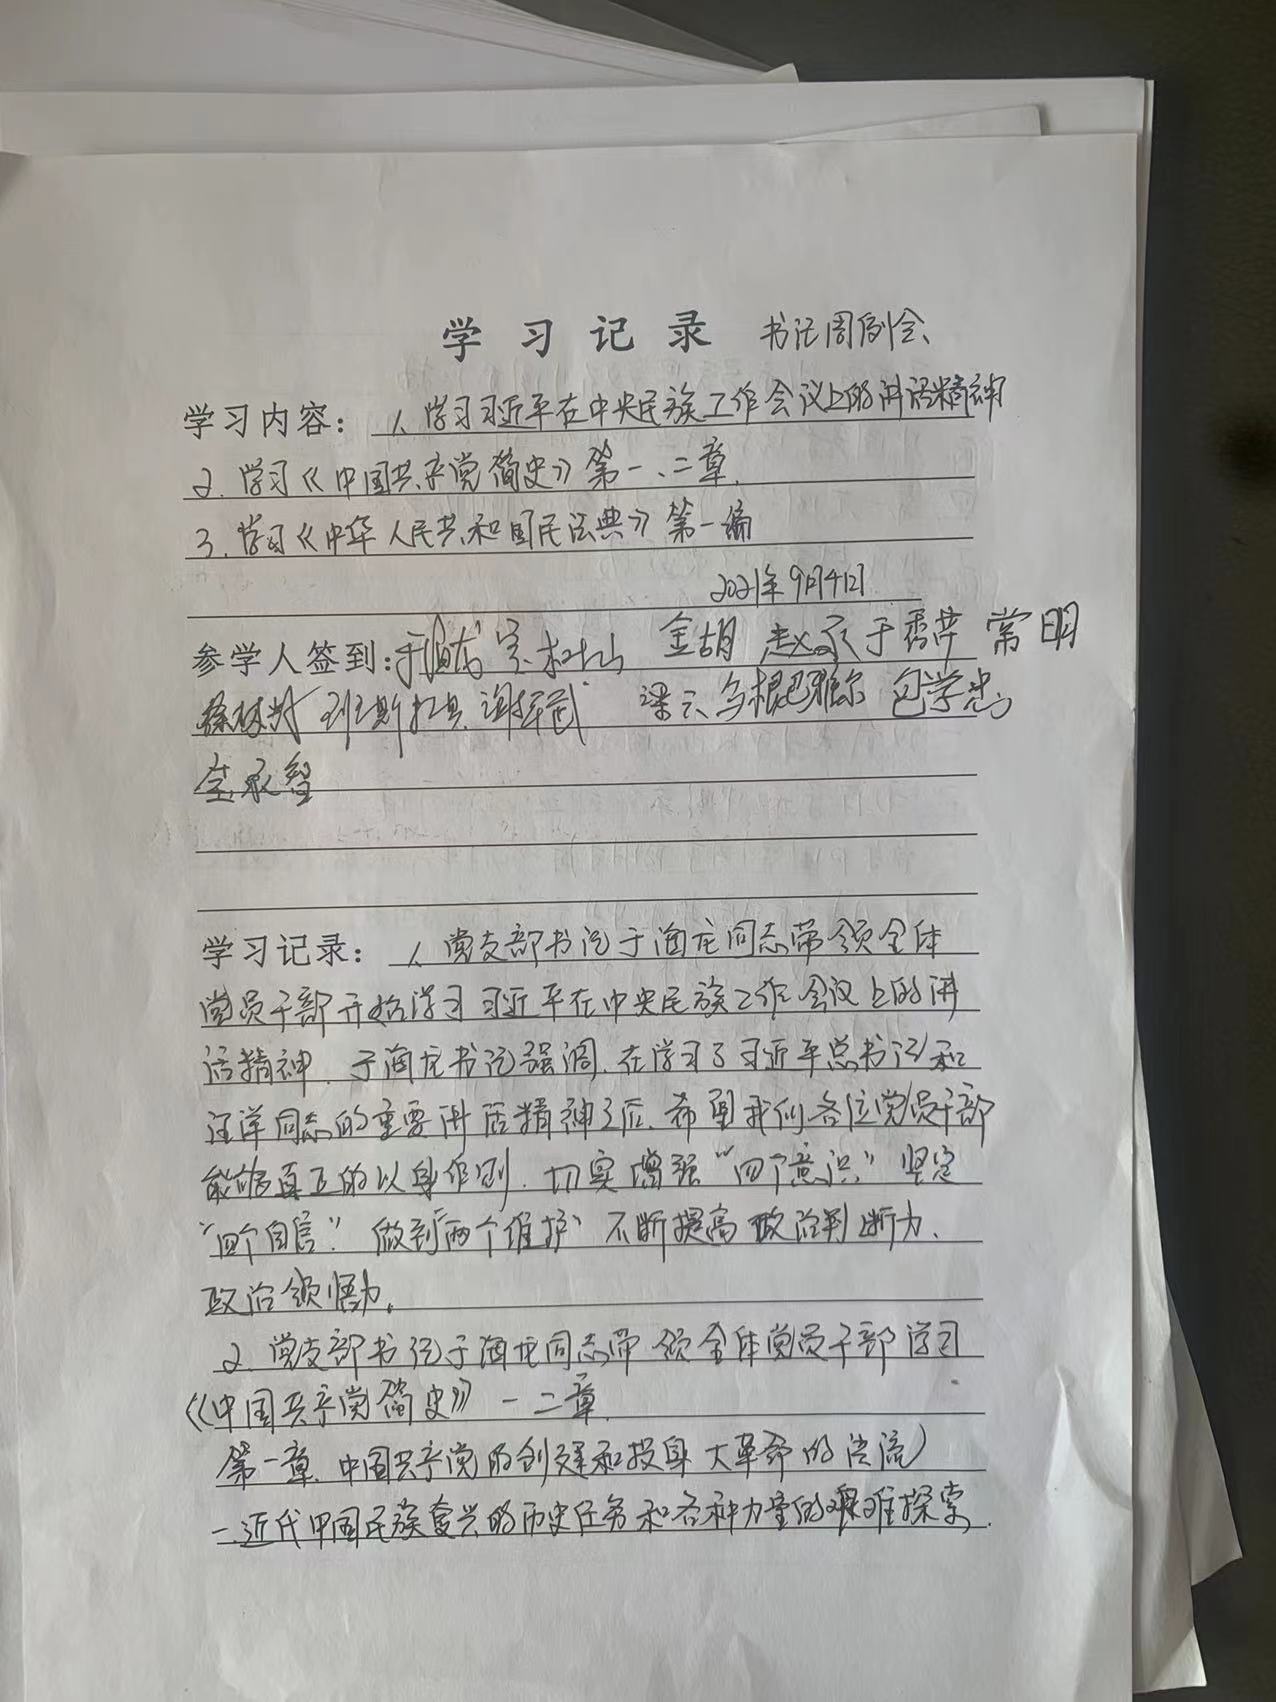 学习记录 书记周例会、
学习内容: 1、学习习近平在中央民族工作会议上的讲话精神
2、学习《中国共产党简史》第一、二章.
3、学习《中华人民共和国民法典》第一编
2021年9月4日
参学人签到: 于海龙 金胡 于秀萍 常明
乌根巴雅尔 包学忠
李永智
学习记录: 1、党支部书记于海龙同志带领全体
党员干部开始学习习近平在中央民族工作会议上的讲
话精神. 于海龙书记强调.在学习了习近平总书记和
汪洋同志的重要讲话精神之后.希望我们各位党员干部
能够真正的以身作则.切实增强“四个意识”坚定
“四个自信”.做到“两个维护”不断提高政治判断力、
政治领悟力。
2、党支部书记于海龙同志带领全体党员干部学习
《中国共产党简史》一二章.
第一章.中国共产党的创建和投身大革命的洪流)
一.近代中国民族复兴的历史任务和各种力量的艰难探索.